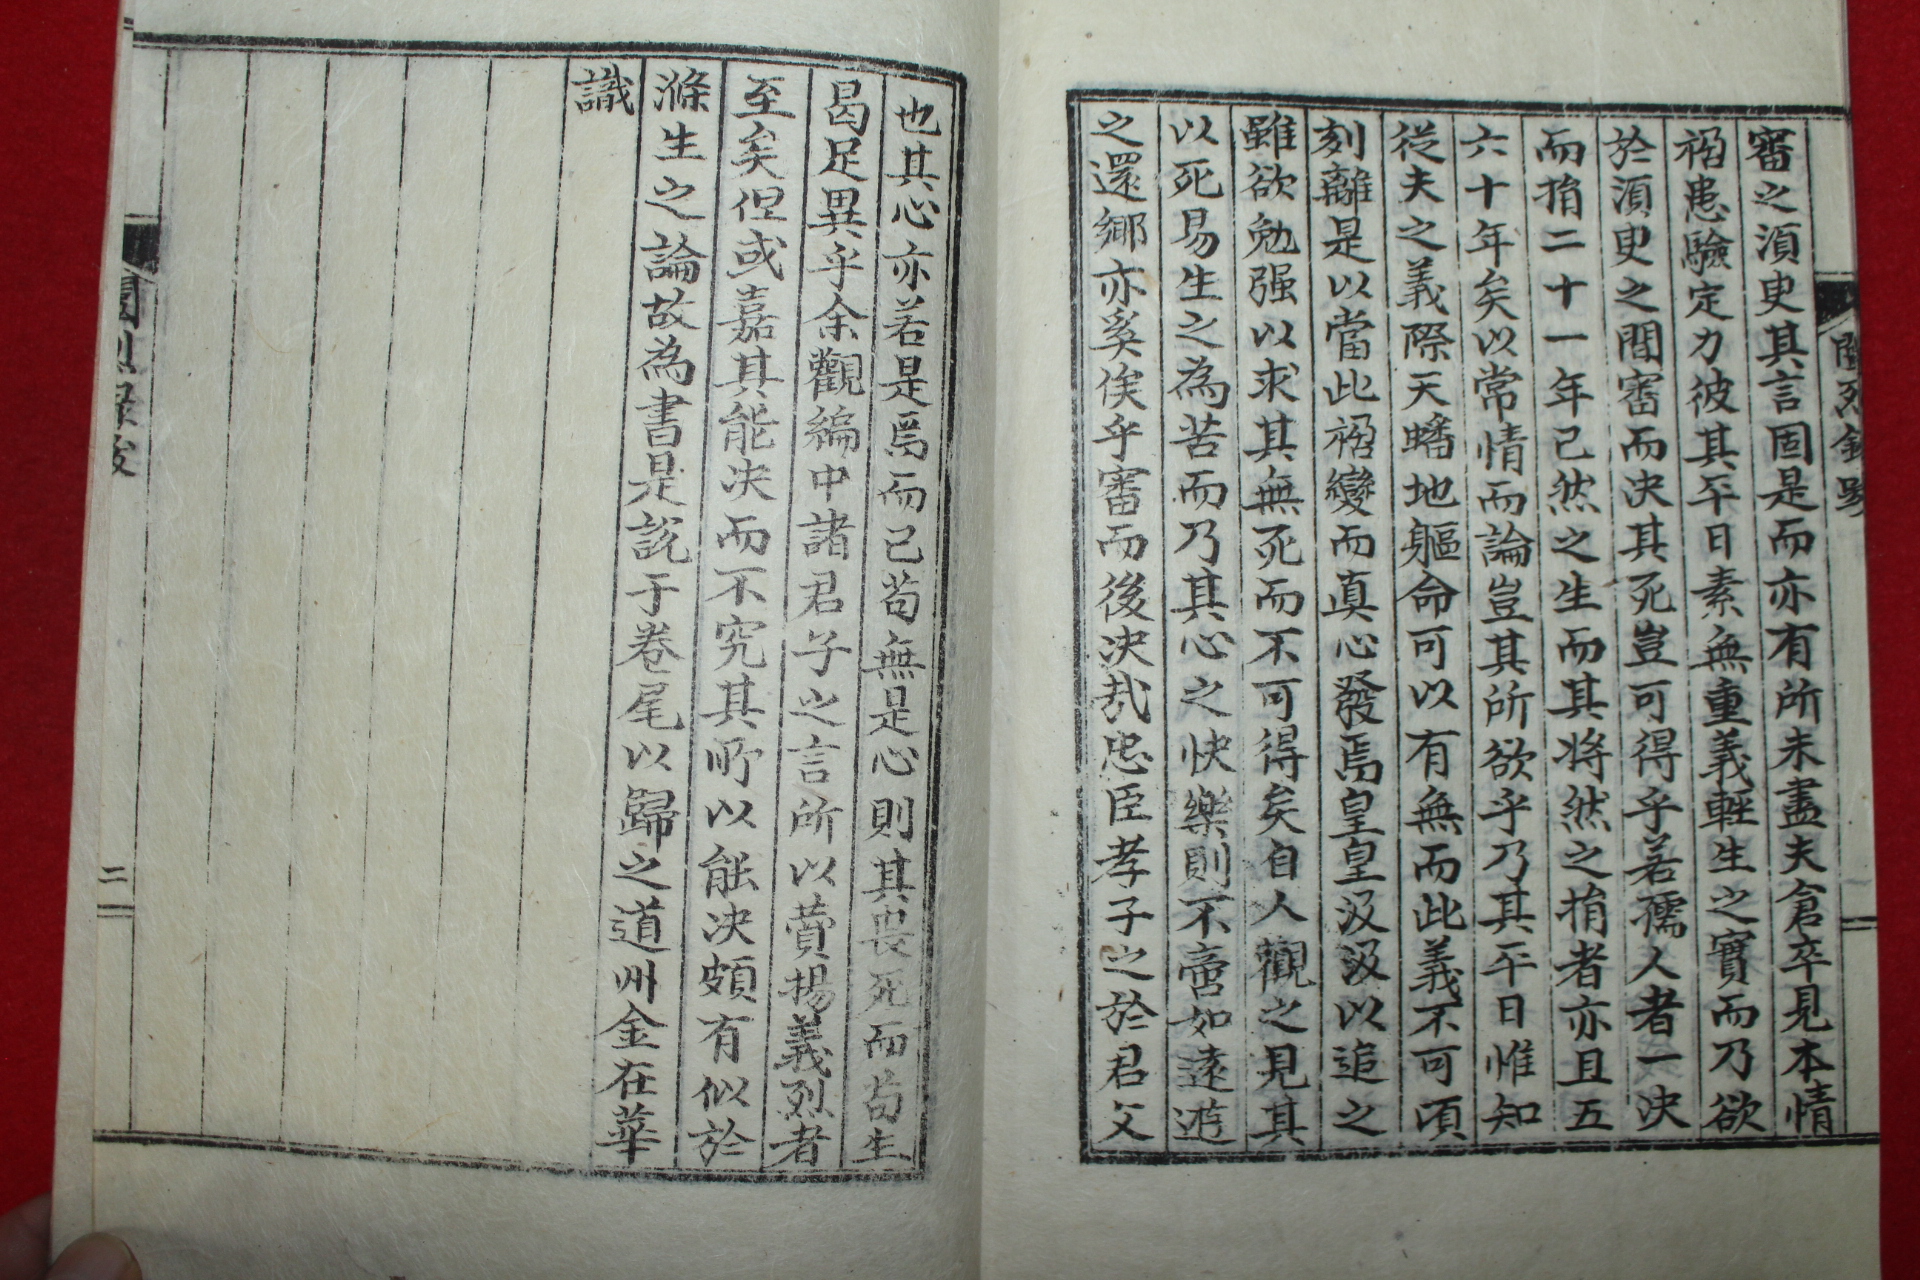 審之湏臾其言固是而亦有所未盡夫倉卒見本情
禍患驗定力彼其平日素無重義輕生之實而乃欲
於湏臾之間審而決其死豈可得乎若孺人者一決
而捐二十一年已然之生而其將然之捐者亦且五
六十年矣以常情而論豈其所欲乎乃其平日惟知
從夫之義際天蟠地軀命可以有無而此義不可頃
刻離是以當此禍變而真心發焉皇皇汲汲以追之
雖欲勉强以求其無死而不可得矣自人觀之見其
以死易生之為苦而乃其心之快樂則不啻如遠遊
之還鄉亦奚俟乎審而後決哉忠臣孝子之於君父
也其心亦若是焉而已苟無是心則其畏死而苟生
曷足異乎余觀編中諸君子之言所以賛揚義烈者
至矣但或嘉其能決而不究其所以能決頗有似於
滌生之論故為書是說于卷尾以歸之道州金在華
識
閨烈錄
二